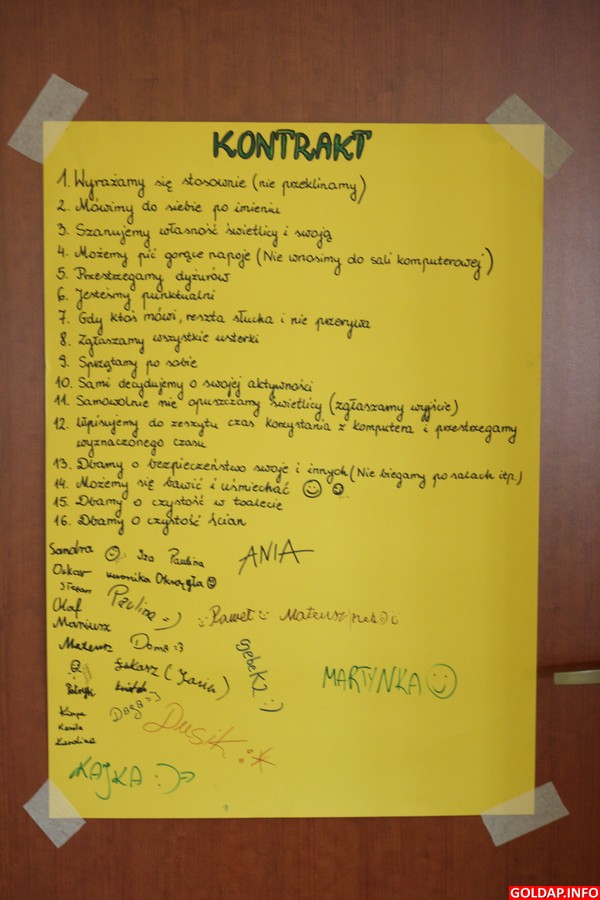 KONTRAKT
1. Wyrażamy się stosownie (nie przeklinamy)
2. Mówimy do siebie po imieniu
3. Szanujemy własność świetlicy i swoją
4. Możemy pić gorące napoje (Nie wnosimy do sali komputerowej)
5. Przestrzegamy dyżurów
6. Jesteśmy punktualni
7. Gdy ktoś mówi, reszta słucha i nie przerywa
8. Zgłaszamy wszystkie usterki
9. Sprzątamy po sobie
10. Sami decydujemy o swojej aktywności
11. Samowolnie nie opuszczamy świetlicy (zgłaszamy wyjście)
12. Wpisujemy do zeszytu czas korzystania z komputera i przestrzegamy
wyznaczonego czasu
13. Dbamy o bezpieczeństwo swoje i innych (Nie biegamy po salach itp.)
14. Możemy się bawić i uśmiechać
15. Dbamy o czystość w toalecie
16. Dbamy o czystość ścian
Sandra Iza Paulina ANIA
Oskar Weronika Okrągła
Stefan Paulina =)
Olaf Paweł Mateusz
Mariusz
Mateusz Doma :3
Łukasz (Jasiu) gebek2 :)
MARTYNKA
Patryk
Kinga Daga =)
Kamila Dusik :*
Karolina
KAJKA :)
GOLDAP.INFO